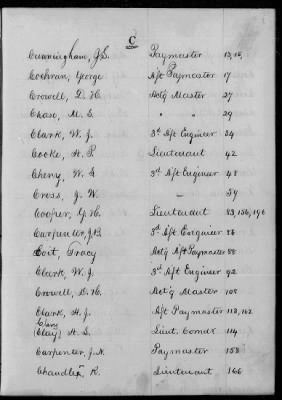 C
Cunningham, J.S. Paymaster 13, 16,
Cochran, George A/t Paymaster 17
Crowell, D. H. Act'g Master 27
Chase, M. E. " " 29
Clark, W. J. 3d A/t Engineer 34
Cooke, A. P. Lieutenant 42
Cherry, W. G. 3d A/t Engineer 48
Cross, J. W. 54
Cooper, G. H. Lieutenant 83, 156, 196
Carpenter, J.B. 3d A/t Engineer 86
Coit, Tracy Act'g A/t Paymaster 88
Clark, W. J. 3d A/t Engineer 92
Crowell, D. H. Act'g Master 108
Clark, H. J. A/t Paymaster 112, 162
Clary
(Clay) H. S. Lieut. Comdr 114
Carpenter, J. N. Paymaster 158
Chandler, R. Lieutenant 166